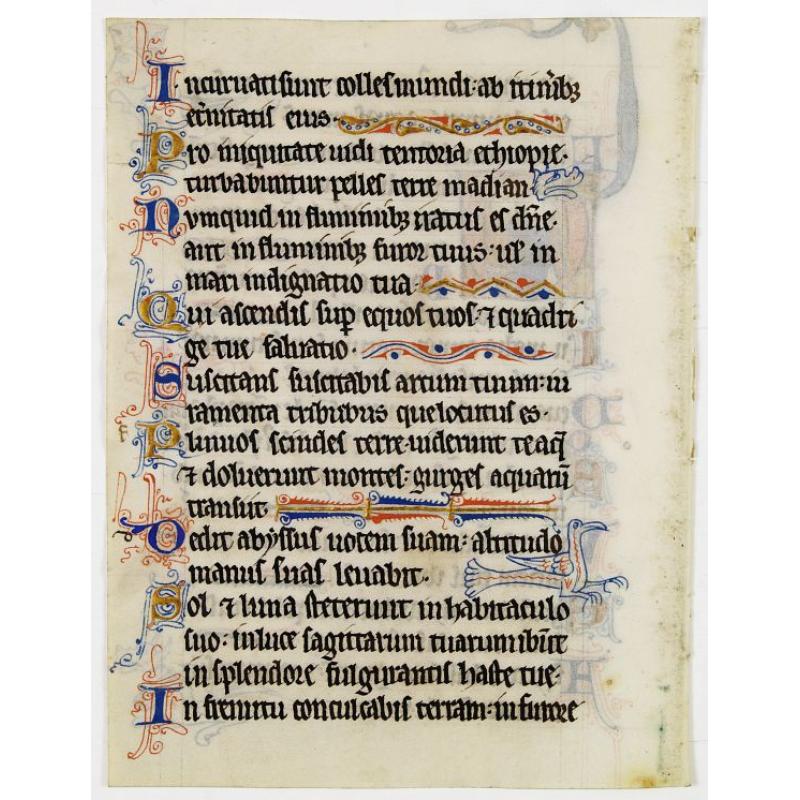 Incuruati sunt colles mundi: ab itinīibꝫ
et̄nitatis eius.
Pro iniquitate uidi tentoria ethiopie.
turbabuntur pelles terre madian
Numquid in fluminibꝫ iratus es dn̄e.
aut in fluminibꝫ furor tuus: ul̄ in
mari indignatio tua
Qui ascendis sup equos tuos. ⁊ quadri
ge tue saluatio.
Suscitans suscitabis arcum tuum: iu
ramenta tribubus que locutus es.
Fluuios scindes terre. uiderunt te aq̄
⁊ doluerunt montes: gurges aquarū
transiit
Dedit abyssus uocem suam: altitudo
manus suas leuabit.
Sol ⁊ luna steterunt in habitaculo
suo: in luce sagittarum tuarum ibūt
in splendore fulgurantis haste tue.
In fremitu conculcabis terram: in furore